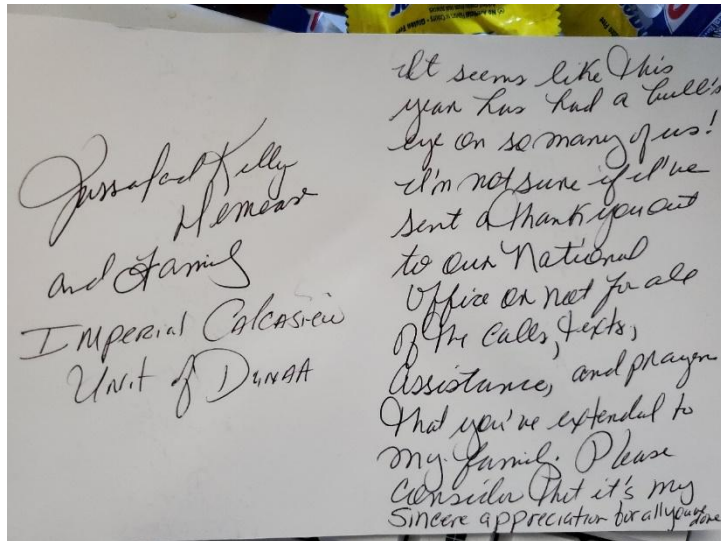 and Family
Imperial Calcasieu
Unit of DYNAA
It seems like this
year has had a bull's
eye on so many of us!
I'm not sure if I've
sent a thank you out
to our National
Office or not for all
of the calls, texts,
assistance, and prayer
that you've extended to
my family. Please
consider that it's my
sincere appreciation for all you've done